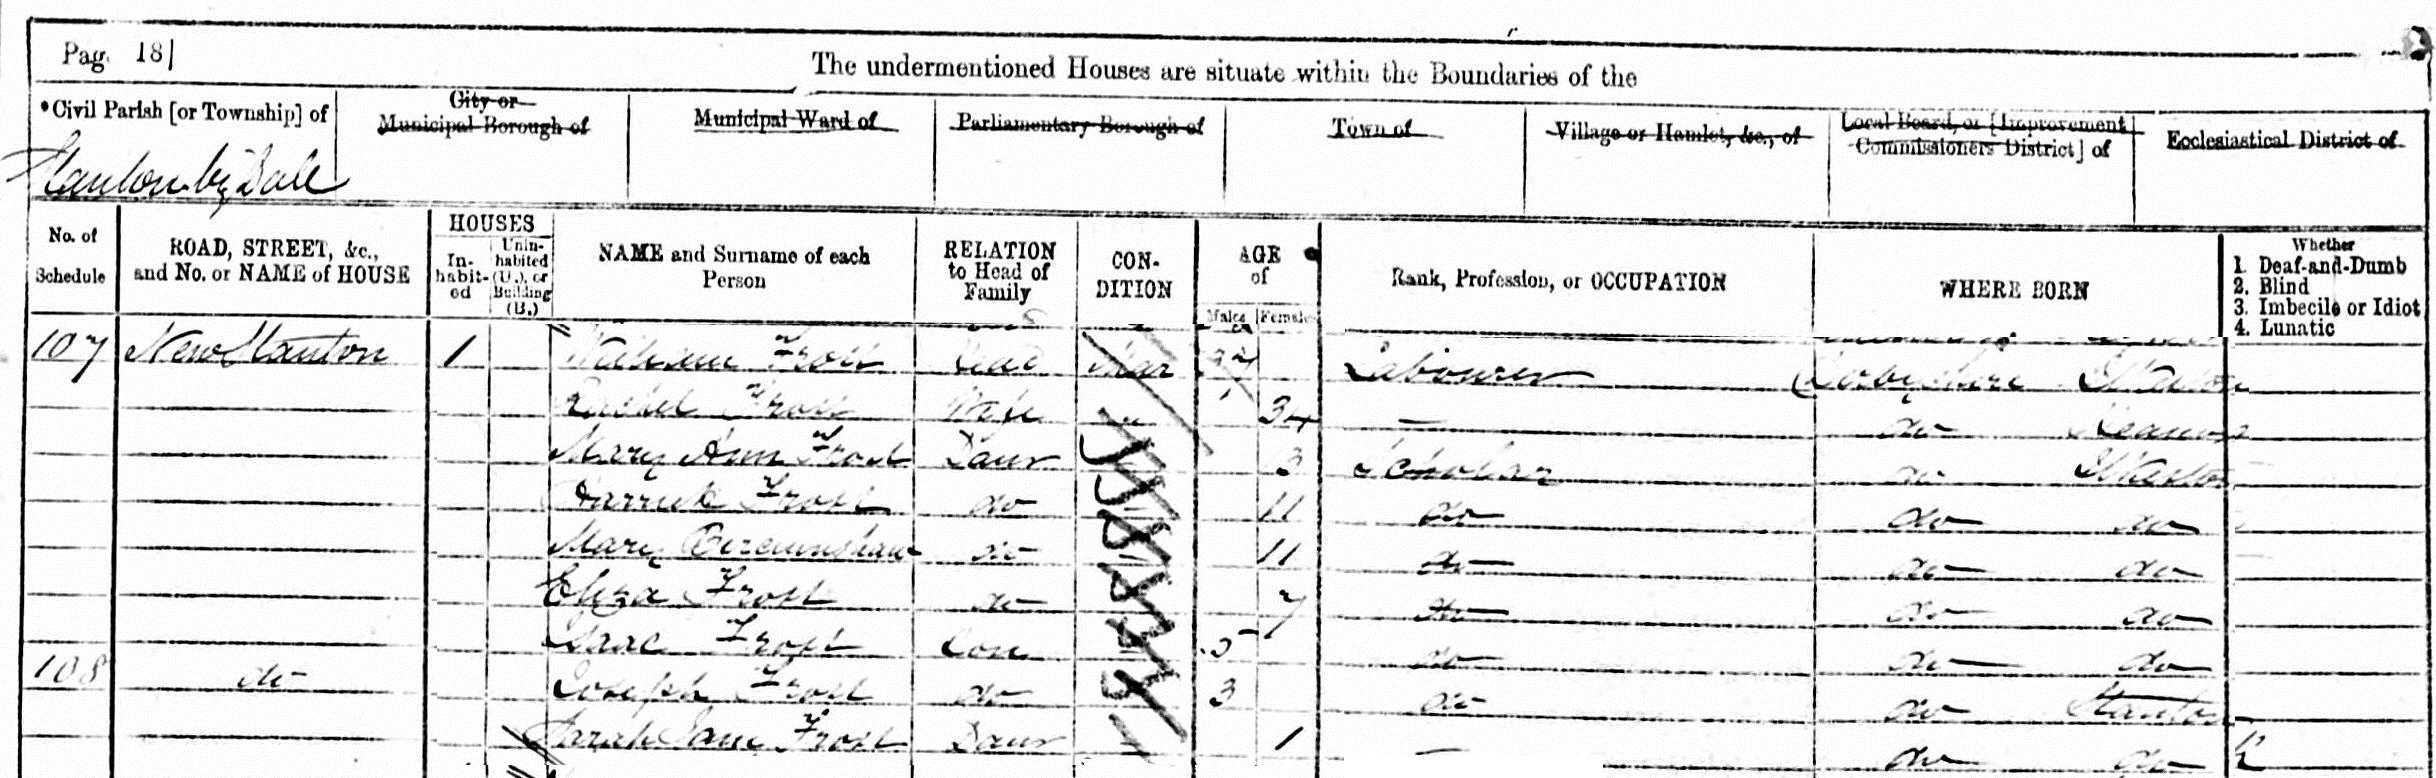 Pag. 18
The undermentioned Houses are situate within the Boundaries of the
*Civil Parish [or Township] of
City or Municipal Borough of
Municipal Ward of
Parliamentary Borough of
Town of
Village or Hamlet, &c., of
Local Board, or [Improvement Commissioners District] of
Ecclesiastical District of
Stanton by Dale
No. of Schedule
ROAD, STREET, &c., and No. or NAME of HOUSE
HOUSES
In-habit-ed
Unin-habited (U.), or Building (B.)
NAME and Surname of each Person
RELATION to Head of Family
CON-DITION
AGE of
Males
Females
Rank, Profession, or OCCUPATION
WHERE BORN
Whether
1. Deaf-and-Dumb
2. Blind
3. Imbecile or Idiot
4. Lunatic
107 New Stanton 1 William Frost Head Mar Labourer Derbyshire
Rachel Frost Wife " 34 — do Heanor
Mary Ann Frost Daur Scholar do
Frost do 11 do do do
Mary do 11 do do do
Eliza Frost do 7 do do do
Isaac Frost Son 5 do do do
108 do Joseph Frost do 3 do do Stanton
Sarah Jane Frost Daur 1 — do do